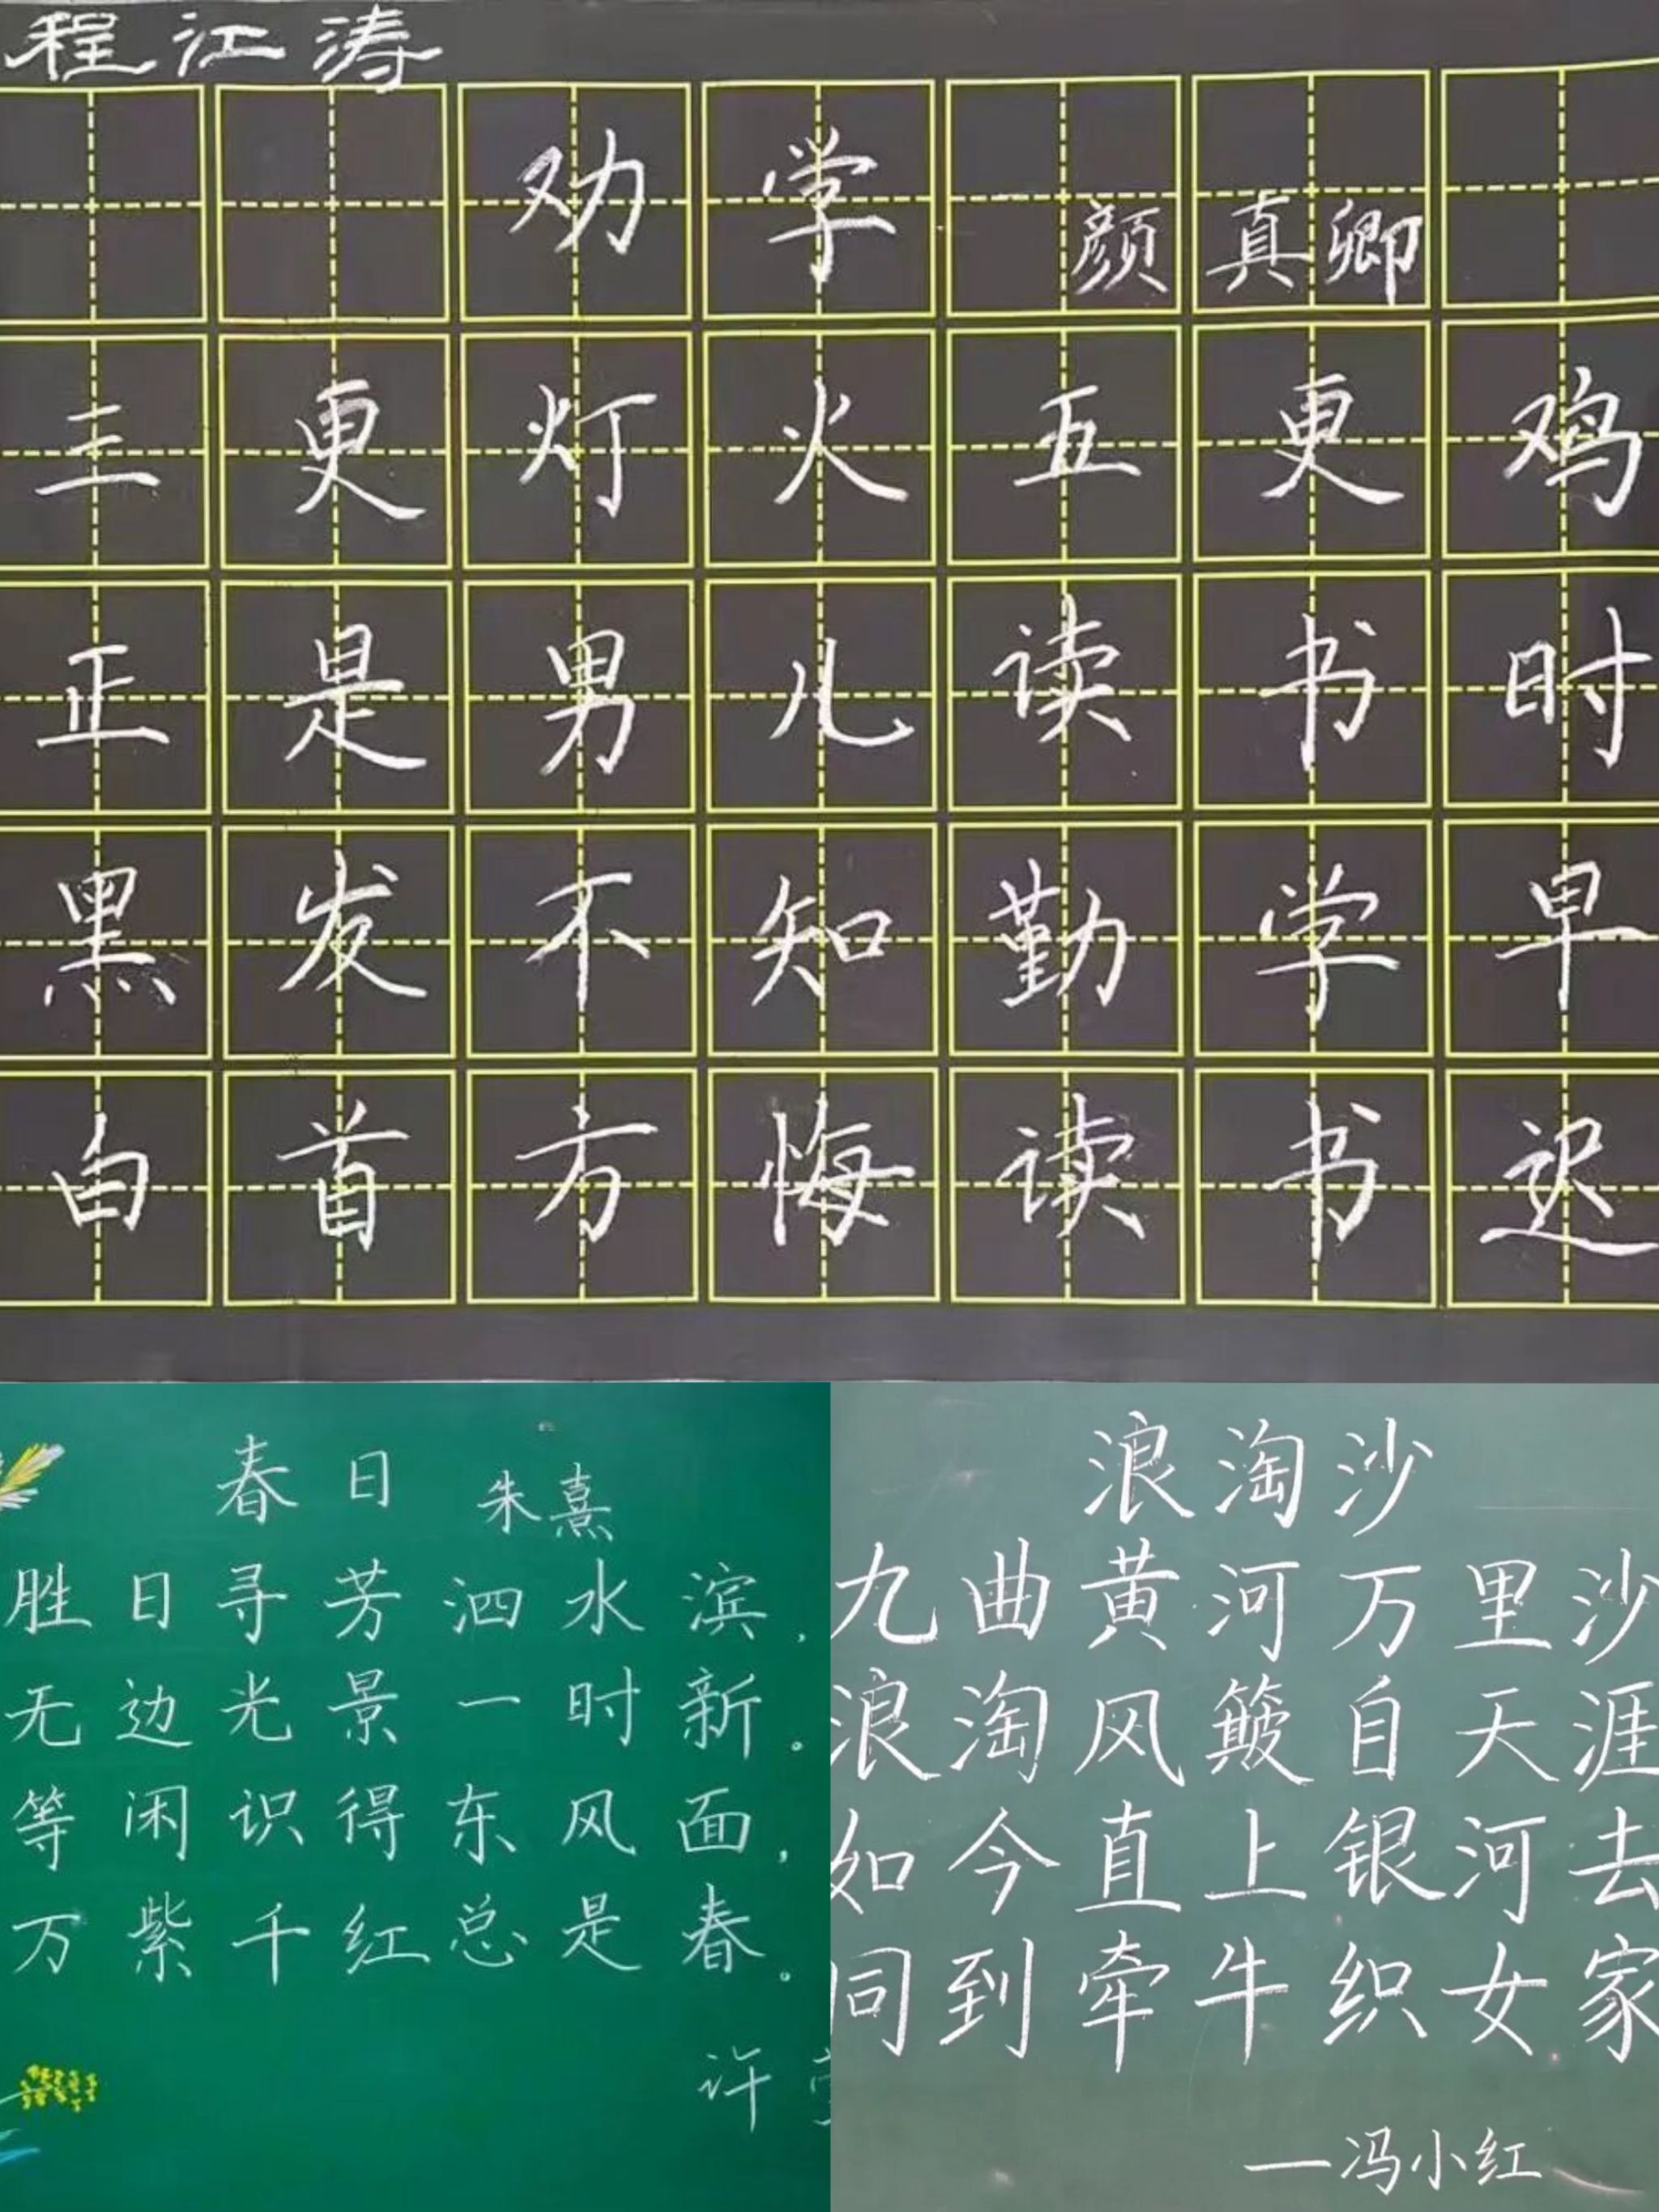 程江涛
劝学 颜真卿
三更灯火五更鸡
正是男儿读书时
黑发不知勤学早
白首方悔读书迟
春日 朱熹
胜日寻芳泗水滨，
无边光景一时新。
等闲识得东风面，
万紫千红总是春。
许
浪淘沙
九曲黄河万里沙
浪淘风簸自天涯
如今直上银河去
同到牵牛织女家
—冯小红